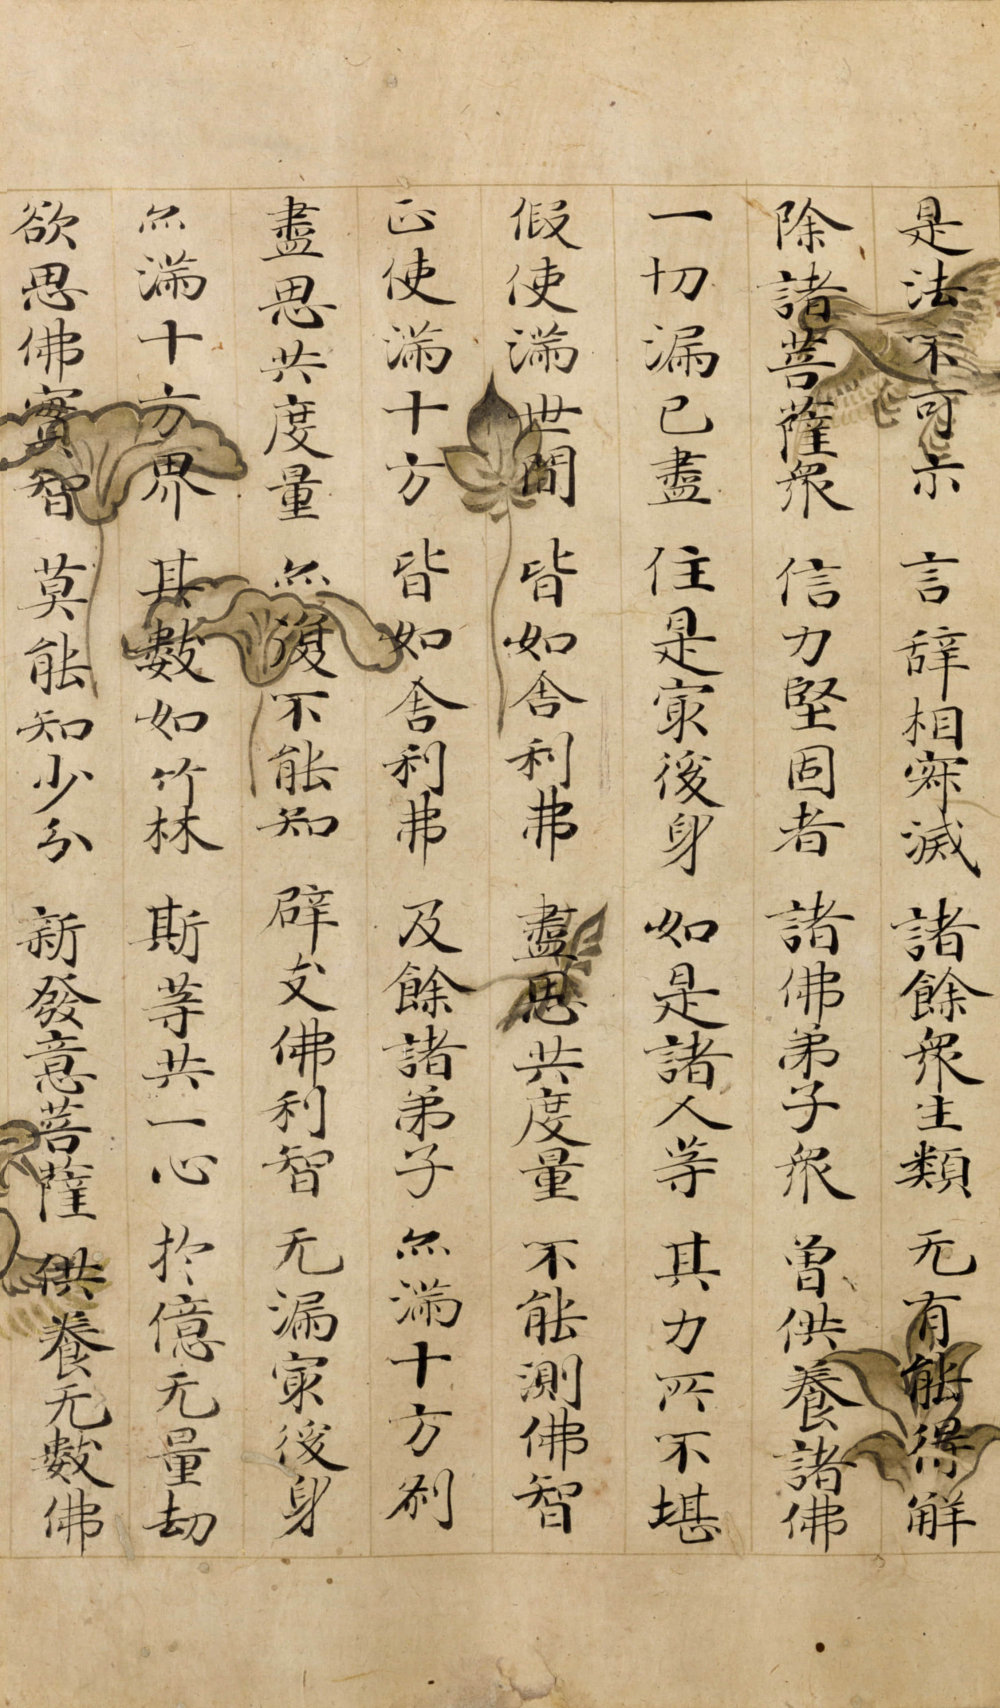 是法不可示 言辭相寂滅 諸餘衆生類 无有能得解
除諸菩薩衆 信力堅固者 諸佛弟子衆 曾供養諸佛
一切漏已盡 住是㝡後身 如是諸人等 其力所不堪
假使滿世間 皆如舍利弗 盡思共度量 不能測佛智
正使滿十方 皆如舍利弗 及餘諸弟子 亦滿十方刹
盡思共度量 亦復不能知 辟支佛利智 无漏㝡後身
亦滿十方界 其數如竹林 斯等共一心 於億无量劫
欲思佛實智 莫能知少分 新發意菩薩 供養无數佛